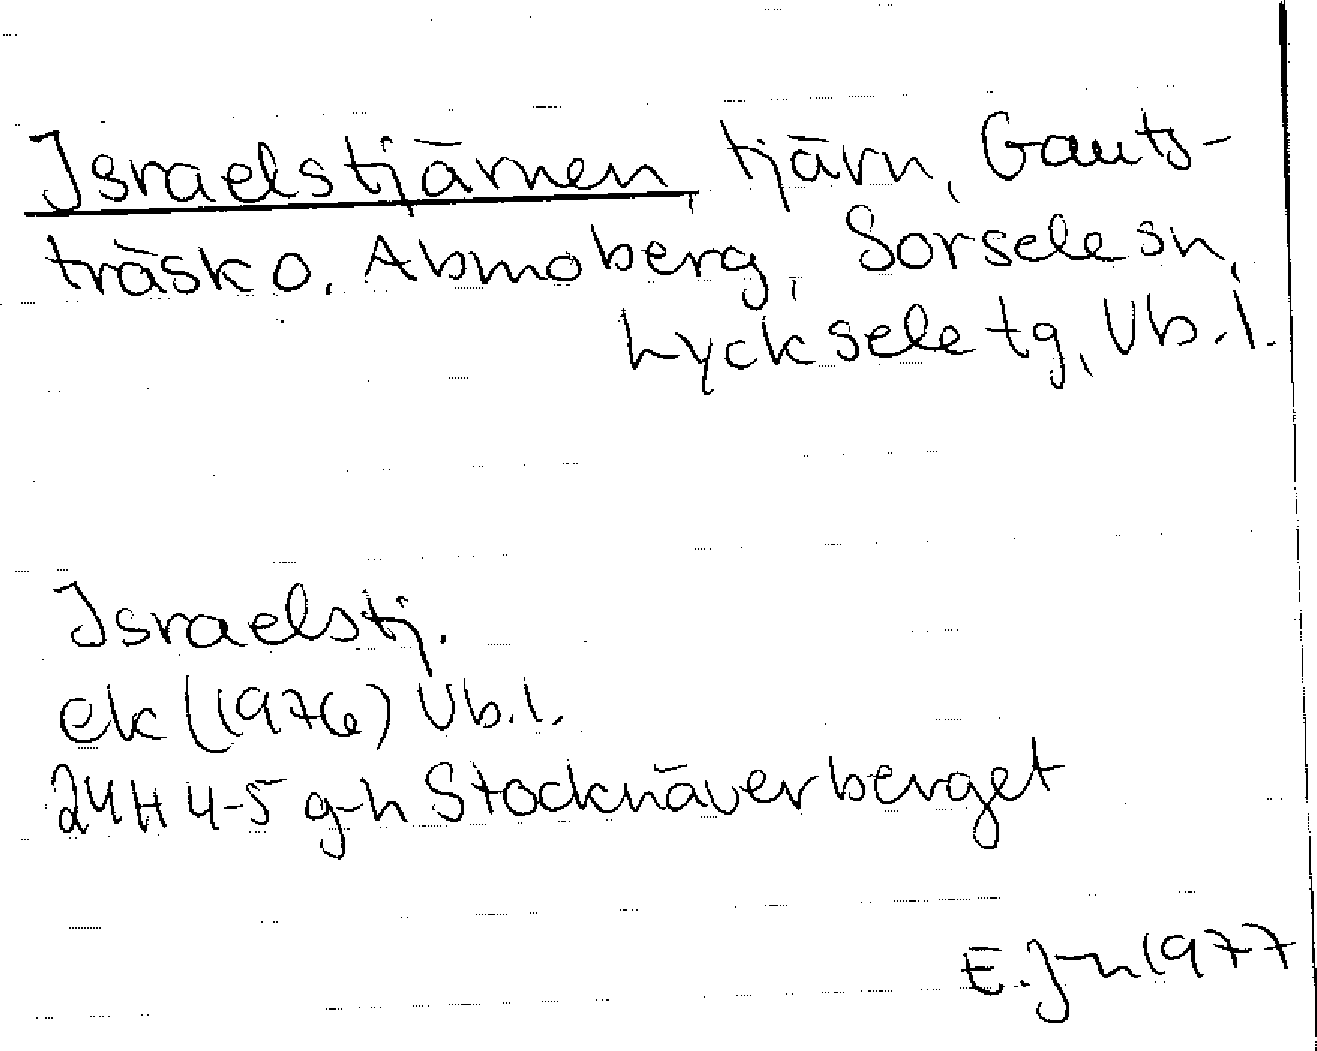 Israelstjärnen, tjärn, Gauts-
träsk o. Abmoberg, Sorsele sn,
Lycksele tg, Vb. l.
Israelstj.
ek (1976) Vb. l.
24H 4-5 g-h Stocknäverberget
E. J-n 1977